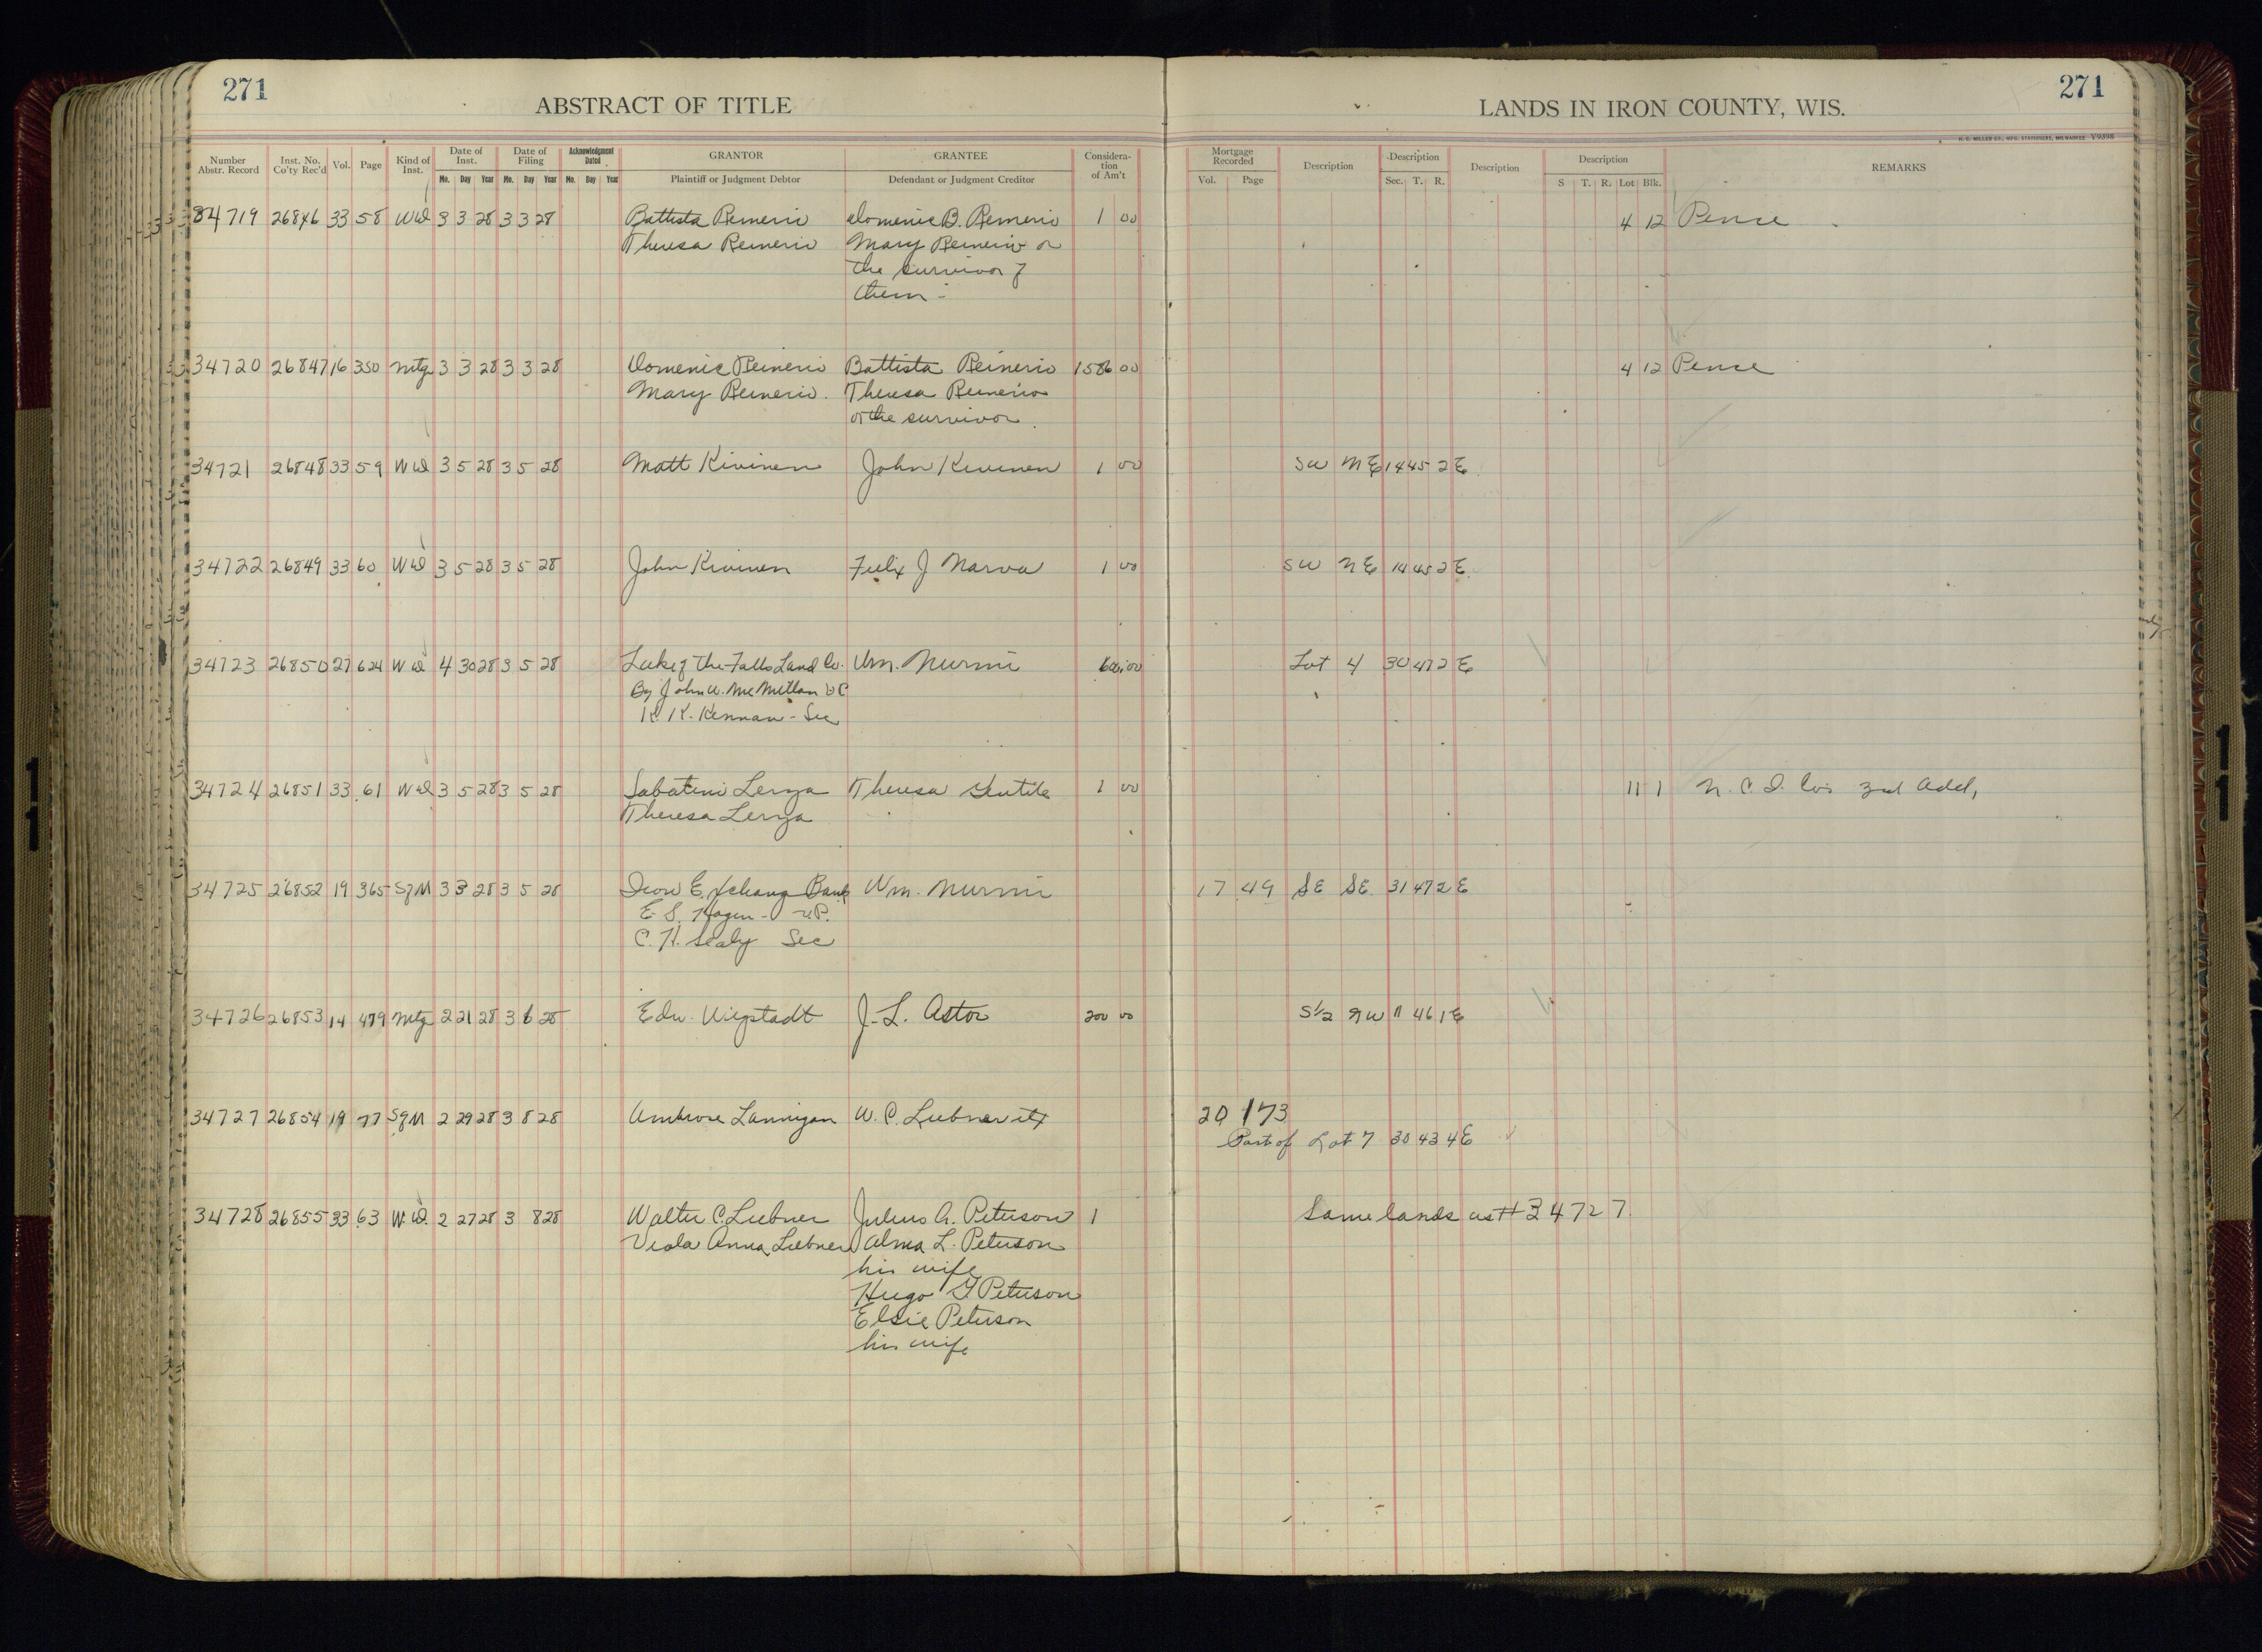 271
271
ABSTRACT OF TITLE
LANDS IN IRON COUNTY, WIS.
H. C. MILLER CO., MFG. STATIONERS, MILWAUKEE V9398
Number Abstr. Record Inst. No. Co'ty Rec'd Vol. Page Kind of Inst. Date of Inst. Date of Filing Acknowledgment Dated GRANTOR GRANTEE Consideration of Am't Mortgage Recorded Description Description Description Description REMARKS
Mo. Day Year Mo. Day Year Mo. Day Year Plaintiff or Judgment Debtor Defendant or Judgment Creditor Vol. Page Sec. T. R. S T. R. Lot Blk.
34719 26846 33 58 WD 3 3 28 3 3 28 Battista Reinerio Domenic B. Reinerio 1 00 4 12 Pence
Theresa Reinerio Mary Reinerio or
the survivor of
them
34720 26847 16 350 Mtg 3 3 28 3 3 28 Domenic Reinerio Battista Reinerio 1586 00 4 12 Pence
Mary Reinerio. Theresa Reinerio
or the survivor.
34721 26848 33 59 WD 3 5 28 3 5 28 Matt Kivinen John Kivinen 1 00 SW NE 14 45 2 E
34722 26849 33 60 WD 3 5 28 3 5 28 John Kivinen Felix J Narva 1 00 SW NE 14 45 2 E
34723 26850 27 624 WD 4 30 28 3 5 28 Lake of the Falls Land Co. Wm. Nurmi 600 00 Lot 4 30 47 2 E
By John W. McMillan VP
K. K. Kennan - Sec
34724 26851 33 61 WD 3 5 28 3 5 28 Sabatini Lerza Theresa Gentile 1 00 11 1 N. C. I. Co's 3rd Add,
Theresa Lerza
34725 26852 19 365 SfM 3 3 28 3 5 28 Iron Exchange Bank Wm. Nurmi 17 49 SE SE 31 47 2 E
E. S. Hagen - V.P.
C. H. Sealy Sec
34726 26853 14 479 Mtg 2 21 28 3 6 28 Edw. Wiepstadt J. L. Astor 200 00 S1/2 NW 11 46 1 E
34727 26854 19 77 SfM 2 29 28 3 8 28 Ambrose Lannigan W. C. Liebner etx 20 173
Part of Lot 7 30 43 4 E
34728 26855 33 63 WD 2 27 28 3 8 28 Walter C. Liebner Julius A. Peterson 1 Same lands as # 34727
Viola Anna Liebner Alma L. Peterson
his wife
Hugo G Peterson
Elsie Peterson
his wife